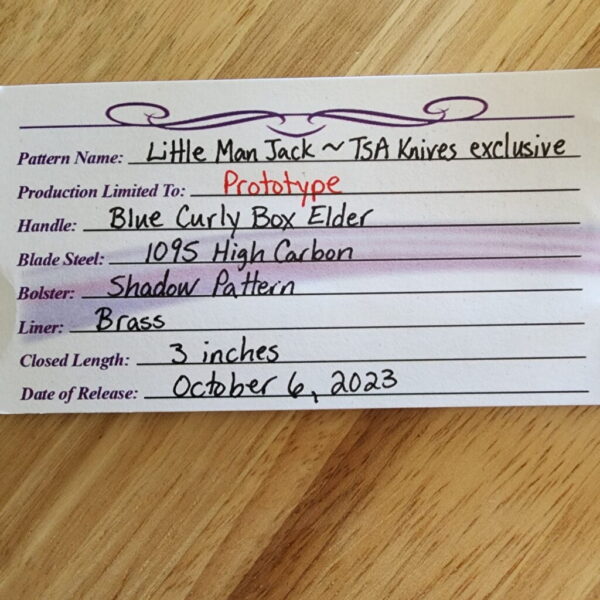 Pattern Name: Little Man Jack ~ TSA Knives exclusive
Production Limited To: Prototype
Handle: Blue Curly Box Elder
Blade Steel: 1095 High Carbon
Bolster: Shadow Pattern
Liner: Brass
Closed Length: 3 inches
Date of Release: October 6, 2023